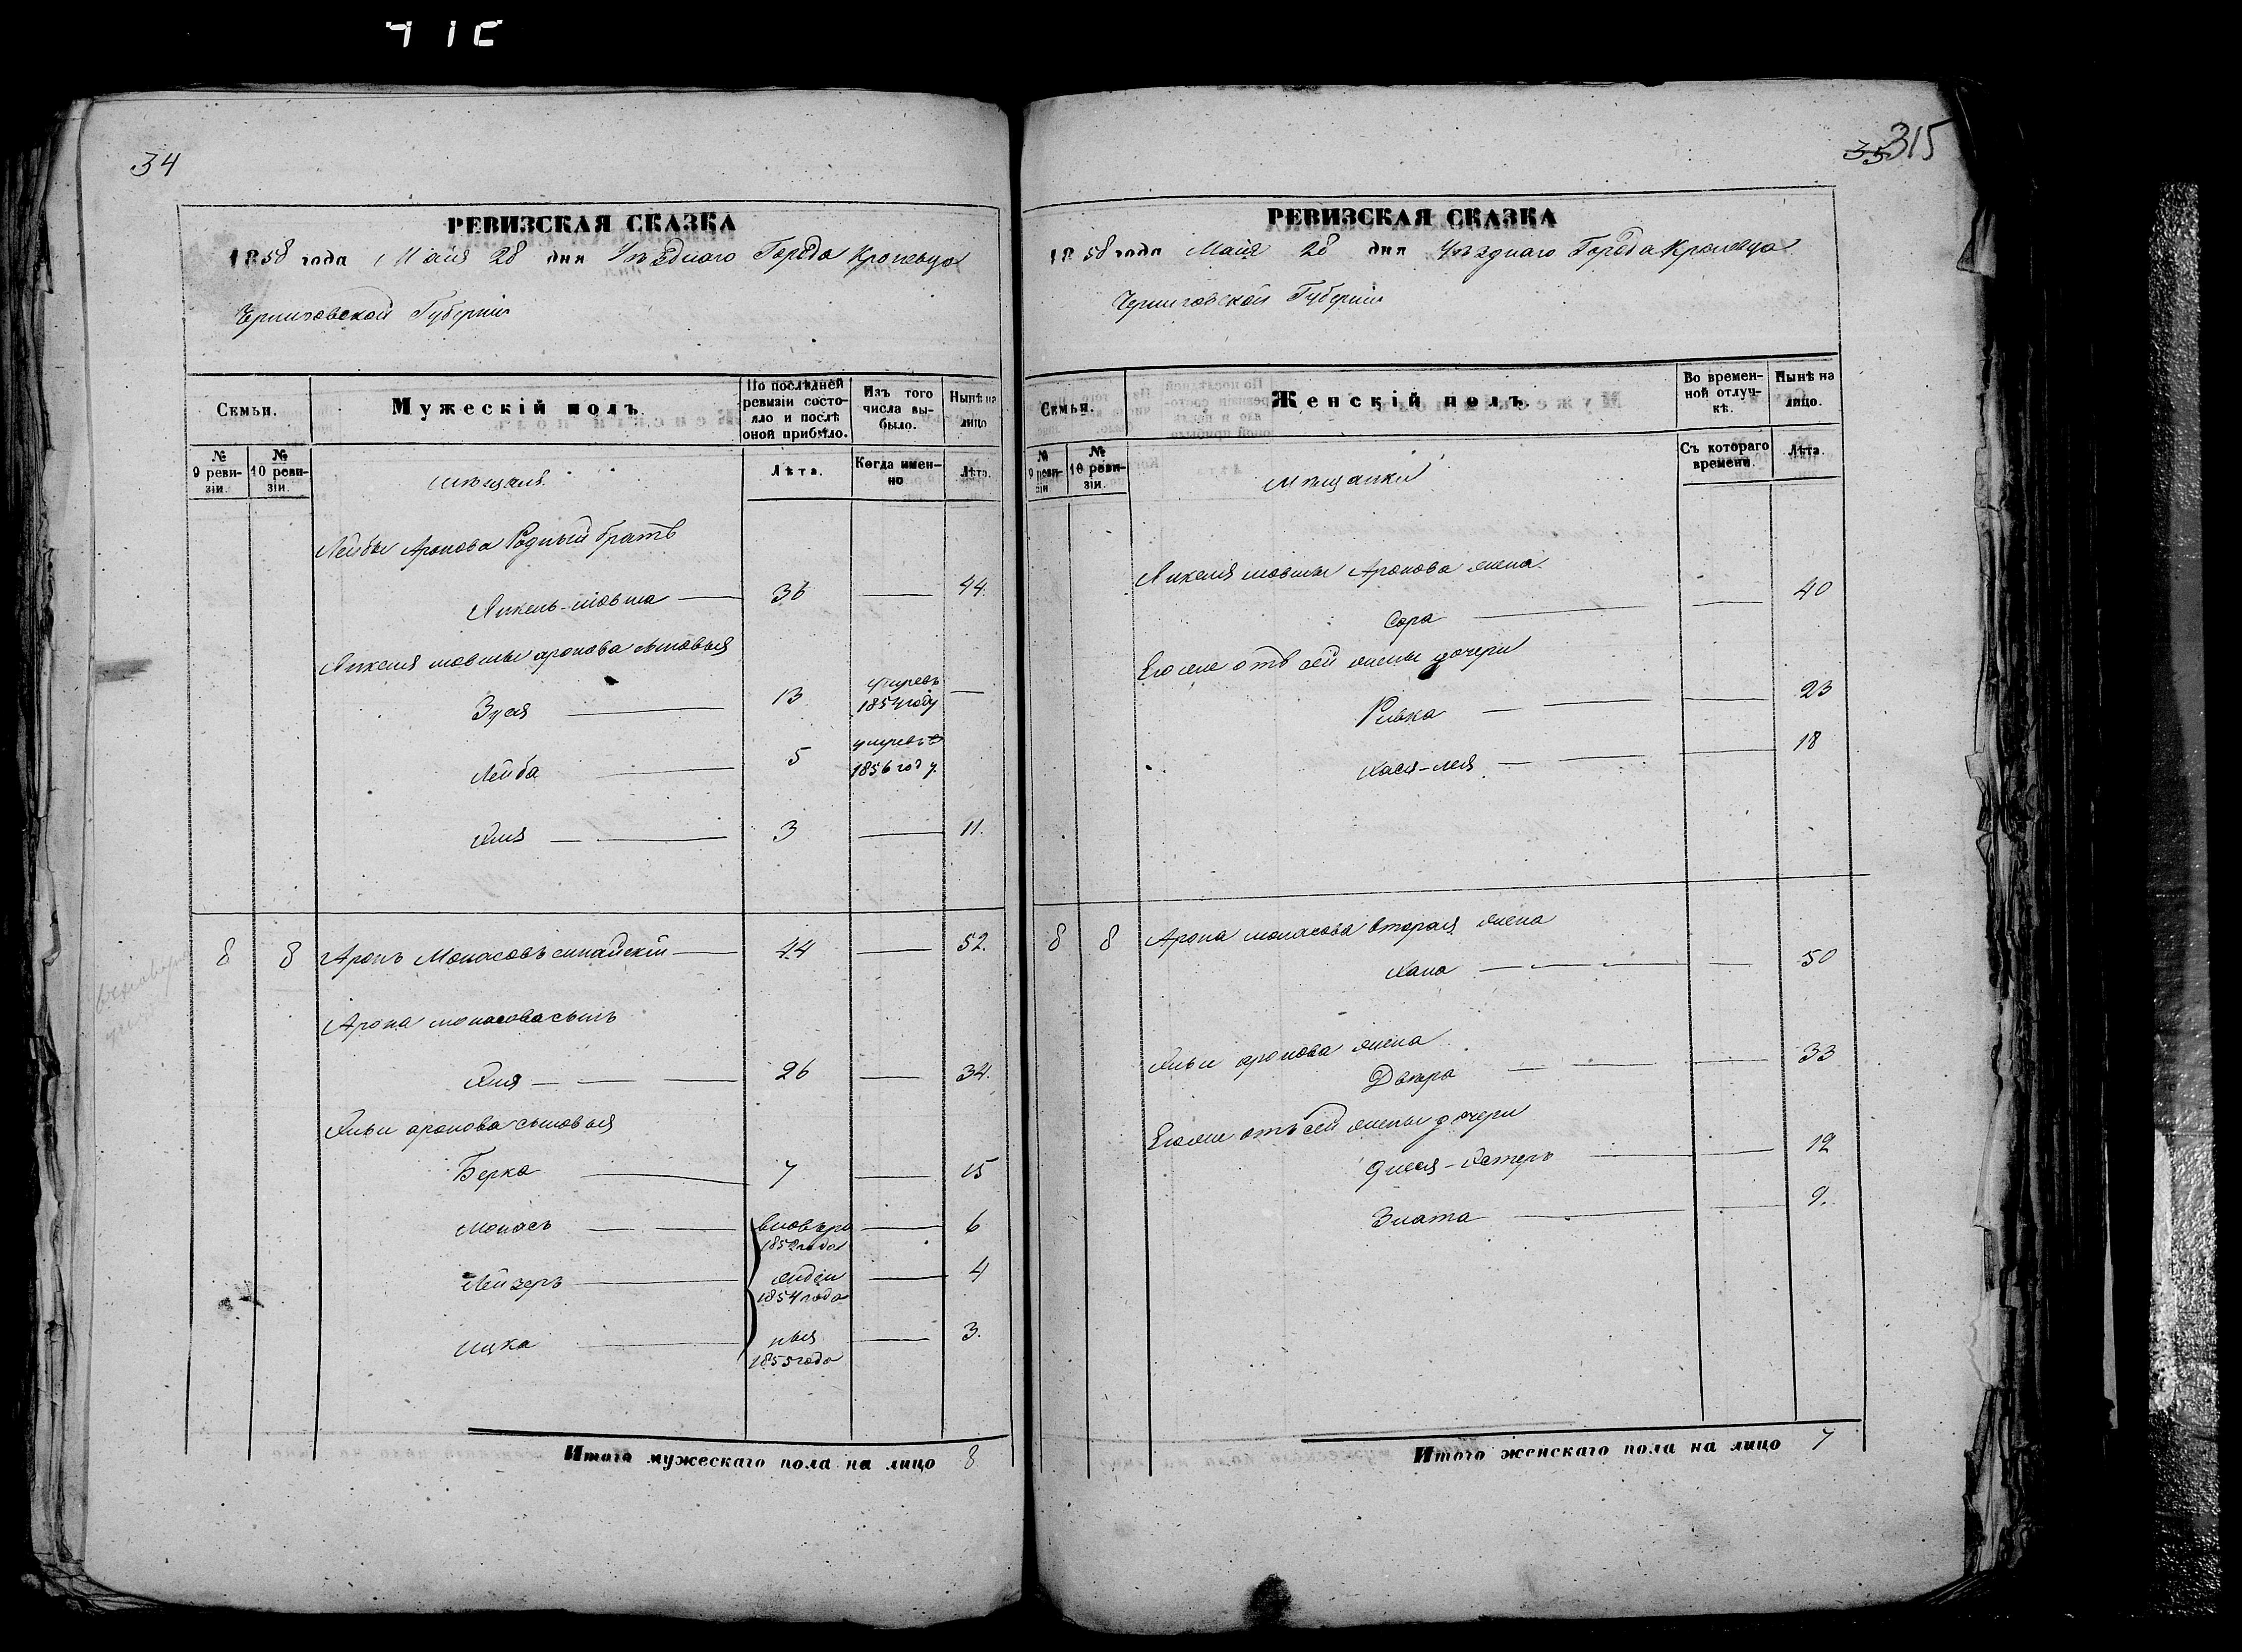 34
РЕВИЗСКАЯ СКАЗКА
1858 года Маія 28 дня Уѣзднаго Города Кролевца
Черниговской Губерніи
Семьи.
Мужескій полъ.
По послѣдней ревизіи состояло и послѣ оной прибыло.
Изъ того числа выбыло.
Нынѣ на лицо
№ 9 ревизіи.
№ 10 ревизіи.
мѣщане
Лѣта.
Когда именно
Лѣта.
Лейбы Аронова Родный братъ
Янкель-товша 36 44.
Янкеля товшы аронова сыновья
Зуся 13 умре въ 1854 году
Лейба 5 умре въ 1856 году.
Хиля 3 11.
8 8 Аронъ Монасовъ синайскій 44 52.
Арона монасова сынъ
26 34.
аронова сыновья
Берка 7 15
Монасъ вновь ро 1852 года 6
Лейзеръ жден 1854 года 4
Ицка ныя 1855 года 3.
Итого мужескаго пола на лицо 8
35 315
РЕВИЗСКАЯ СКАЗКА
1858 года Маія 28 дня Уѣзднаго Города Кролевца
Черниговской Губерніи
Семьи.
Женскій полъ.
Во временной отлучкѣ.
Нынѣ на лицо.
№ 9 ревизіи
№ 10 ревизіи.
мѣщанки
Съ котораго времени.
Лѣта.
Янкеля товшы Аронова жена
Сора 40
Его же отъ сей жены дочери
Ривка 23
Хася-лея 18
8 8 Арона монасова вторая жена
Хана 50
аронова жена
Двера 33
Его же отъ сей жены дочери
Эстеръ 12
Злата 9.
Итого женскаго пола на лицо 7